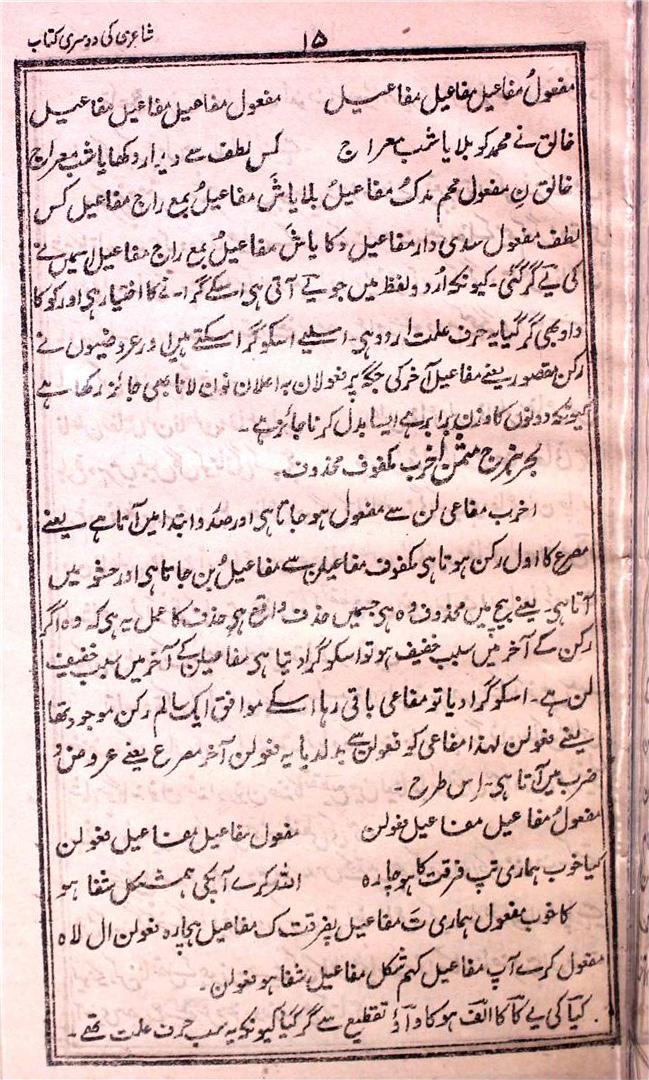 شاعری کی دوسری کتاب
۱۵
مفعولُ مفاعیل مفاعیل مفاعیل مفعول مفاعیل مفاعیل مفاعیل
خالق نے محمد کو بلایا شب معراج کس لطف سے دیدار دکھایا شب معراج
خالق نِ مفعول محم مدکُ مفاعیلُ بلایا شَ مفاعیلُ بمع راج مفاعیل کس
لطف مفعول سدی دار مفاعیل دکایا شَ مفاعیلُ بمع راج مفاعیل اسمیں نے
کی یے گر گئی۔ کیونکہ اُردو لفظ میں جو یے آتی ہی اسکے گرانے کا اختیار ہی اور کو کا
واو بھی گر گیا یہ حرف علت اردو ہی۔ اسلیے اسکو گرا سکتے ہیں اور عروضیوں نے
رکن مقصور یعنے مفاعیل آخر کی جگہ پر فعولان بہ اعلان نون لانا بھی جائز رکھا ہے
کیونکہ دونوں کا وزن برابر ہے ایسا بدل کرنا جائز ہے۔
بحر ہزج مثمن اخرب مکفوف محذوف۔
اخرب مفاعی لن سے مفعول ہو جاتا ہی اور صدر و ابتدا میں آتا ہے یعنے
مصرع کا اول رکن ہوتا ہی مکفوف مفاعیلن سے مفاعیلُ بن جاتا ہی اور حشو میں
آتا ہی یعنے بیچ میں محذوف وہ ہی جسمیں حذف واقع ہو حذف کا عمل یہ ہی کہ وہ اگر
رکن کے آخر میں سبب خفیف ہو تو اسکو گرا دیتا ہی مفاعیلن کے آخر میں سبب خفیف
لن ہے۔ اسکو گرا دیا تو مفاعی باقی رہا اسکے موافق ایک سالم رکن موجود تھا
یعنے فعولن لہذا مفاعی کو فعولن سے بدلدیا یہ فعولن آخر مصرع یعنے عروض و
ضرب میں آتا ہی۔ اس طرح۔
مفعولُ مفاعیل مفاعیل فعولن مفعول مفاعیل مفاعیل فعولن
کیا خوب ہماری تپ فرقت کا ہو چارہ اللہ کرے آپکی ہمشکل شفا ہو
کا خوب مفعول ہماری تَ مفاعیل پفرقت ک مفاعیل ہچارہ فعولن ال لاہ
مفعول کرے آپ مفاعیل کہم شکل مفاعیل شفا ہو فعولن۔
کیا کی یے کا کا الف ہو کا واؤ تقطیع سے گر گیا کیونکہ یہ سب حرف علت تھے۔